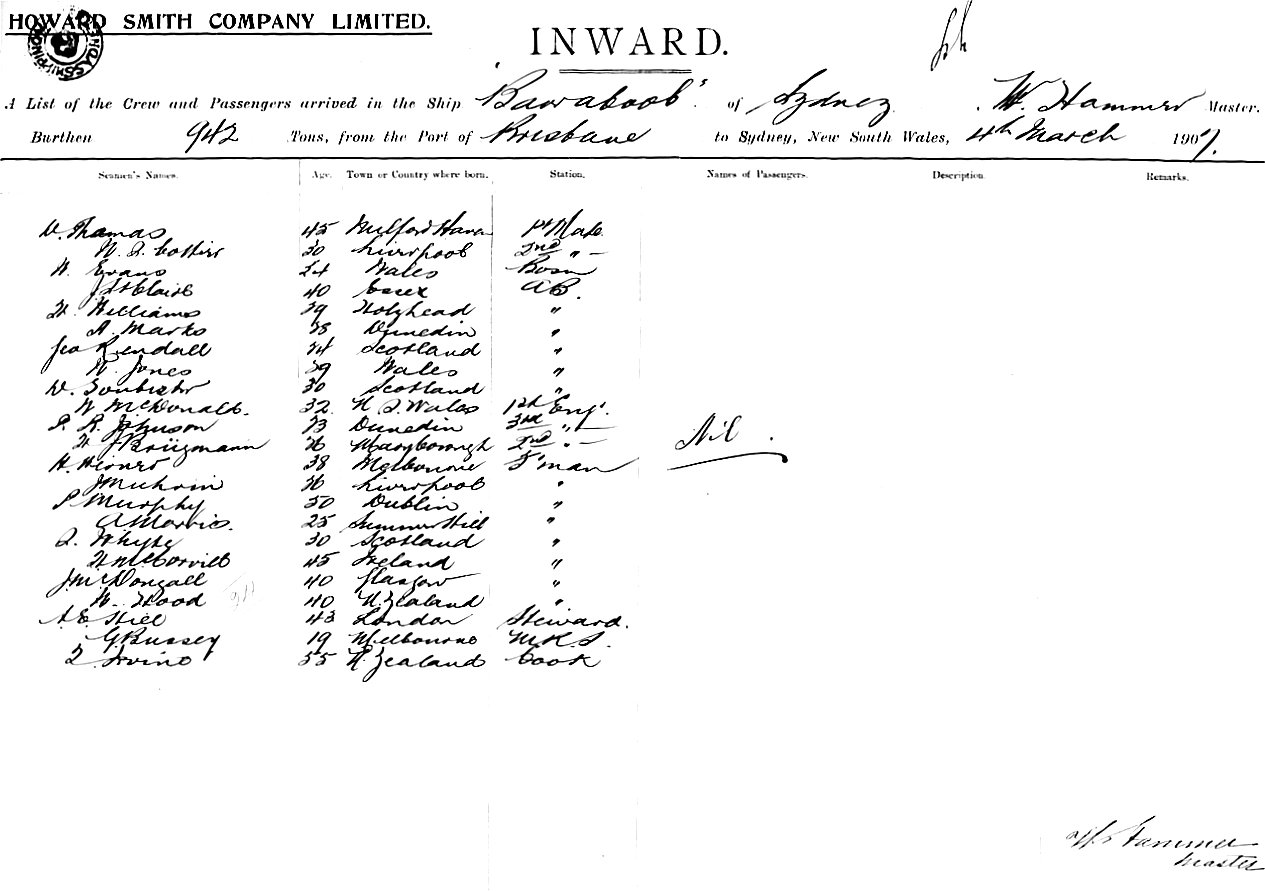 HOWARD SMITH COMPANY LIMITED.
INWARD.
A List of the Crew and Passengers arrived in the Ship "Bawaboob" of Sydney. W. Hammer Master.
Burthen 942 Tons, from the Port of Brisbane to Sydney, New South Wales, 4th March 1907.
Seamen's Names. Age. Town or Country where born. Station. Names of Passengers. Description. Remarks.
W. Thomas 45 Milford Haven 1st Mate
30 Liverpool 2nd " —
W. Evans Wales Bosn
40 Essex AB.
H. Williams 39 Holyhead "
A. Marks Dunedin "
Geo Kendall Scotland "
W. Jones 39 Wales "
30 Scotland "
W McDonald. 32 N. S. Wales 1st Eng.
P. R. Johnson Dunedin 3rd " —
Brügmann Maryborough 2nd " —
Nil.
38 Melbourne F'man
Liverpool "
P Murphy 50 Dublin "
A Morris. 25 Summer Hill "
Whyte 30 Scotland "
45 Ireland "
J McDougall 40 Glasgow "
W. Wood 40 N. Zealand "
A. E. Hill 43 London Steward.
G Bussey 19 Melbourne M.R.S.
Irvine 55 N. Zealand Cook
W. Hammer
Master